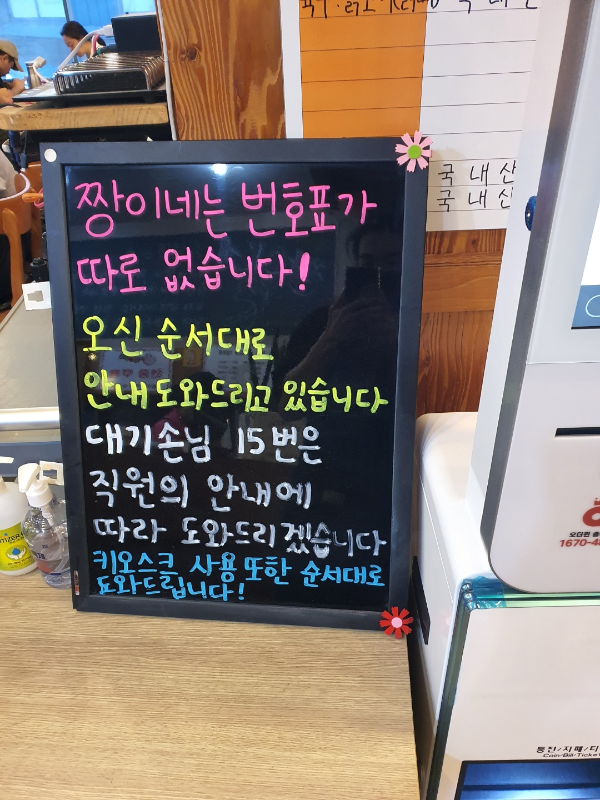 국내산
국내산
짱이네는 번호표가
따로 없습니다!
오신 순서대로
안내도와드리고 있습니다
대기손님 15번은
직원의 안내에
따라 도와드리겠습니다
키오스크 사용 또한 순서대로
도와드립니다!
동전/지폐/티
Coin·Bill·Ticket